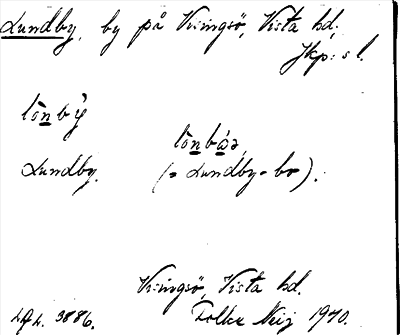 Lundby, by på Visingsö, Vista hd;
Jkp:s l.
lònbý
lònbáə
Lundby. (= Lundby-bo).
Visingsö, Vista hd.
3886. Folke Neij 1940.